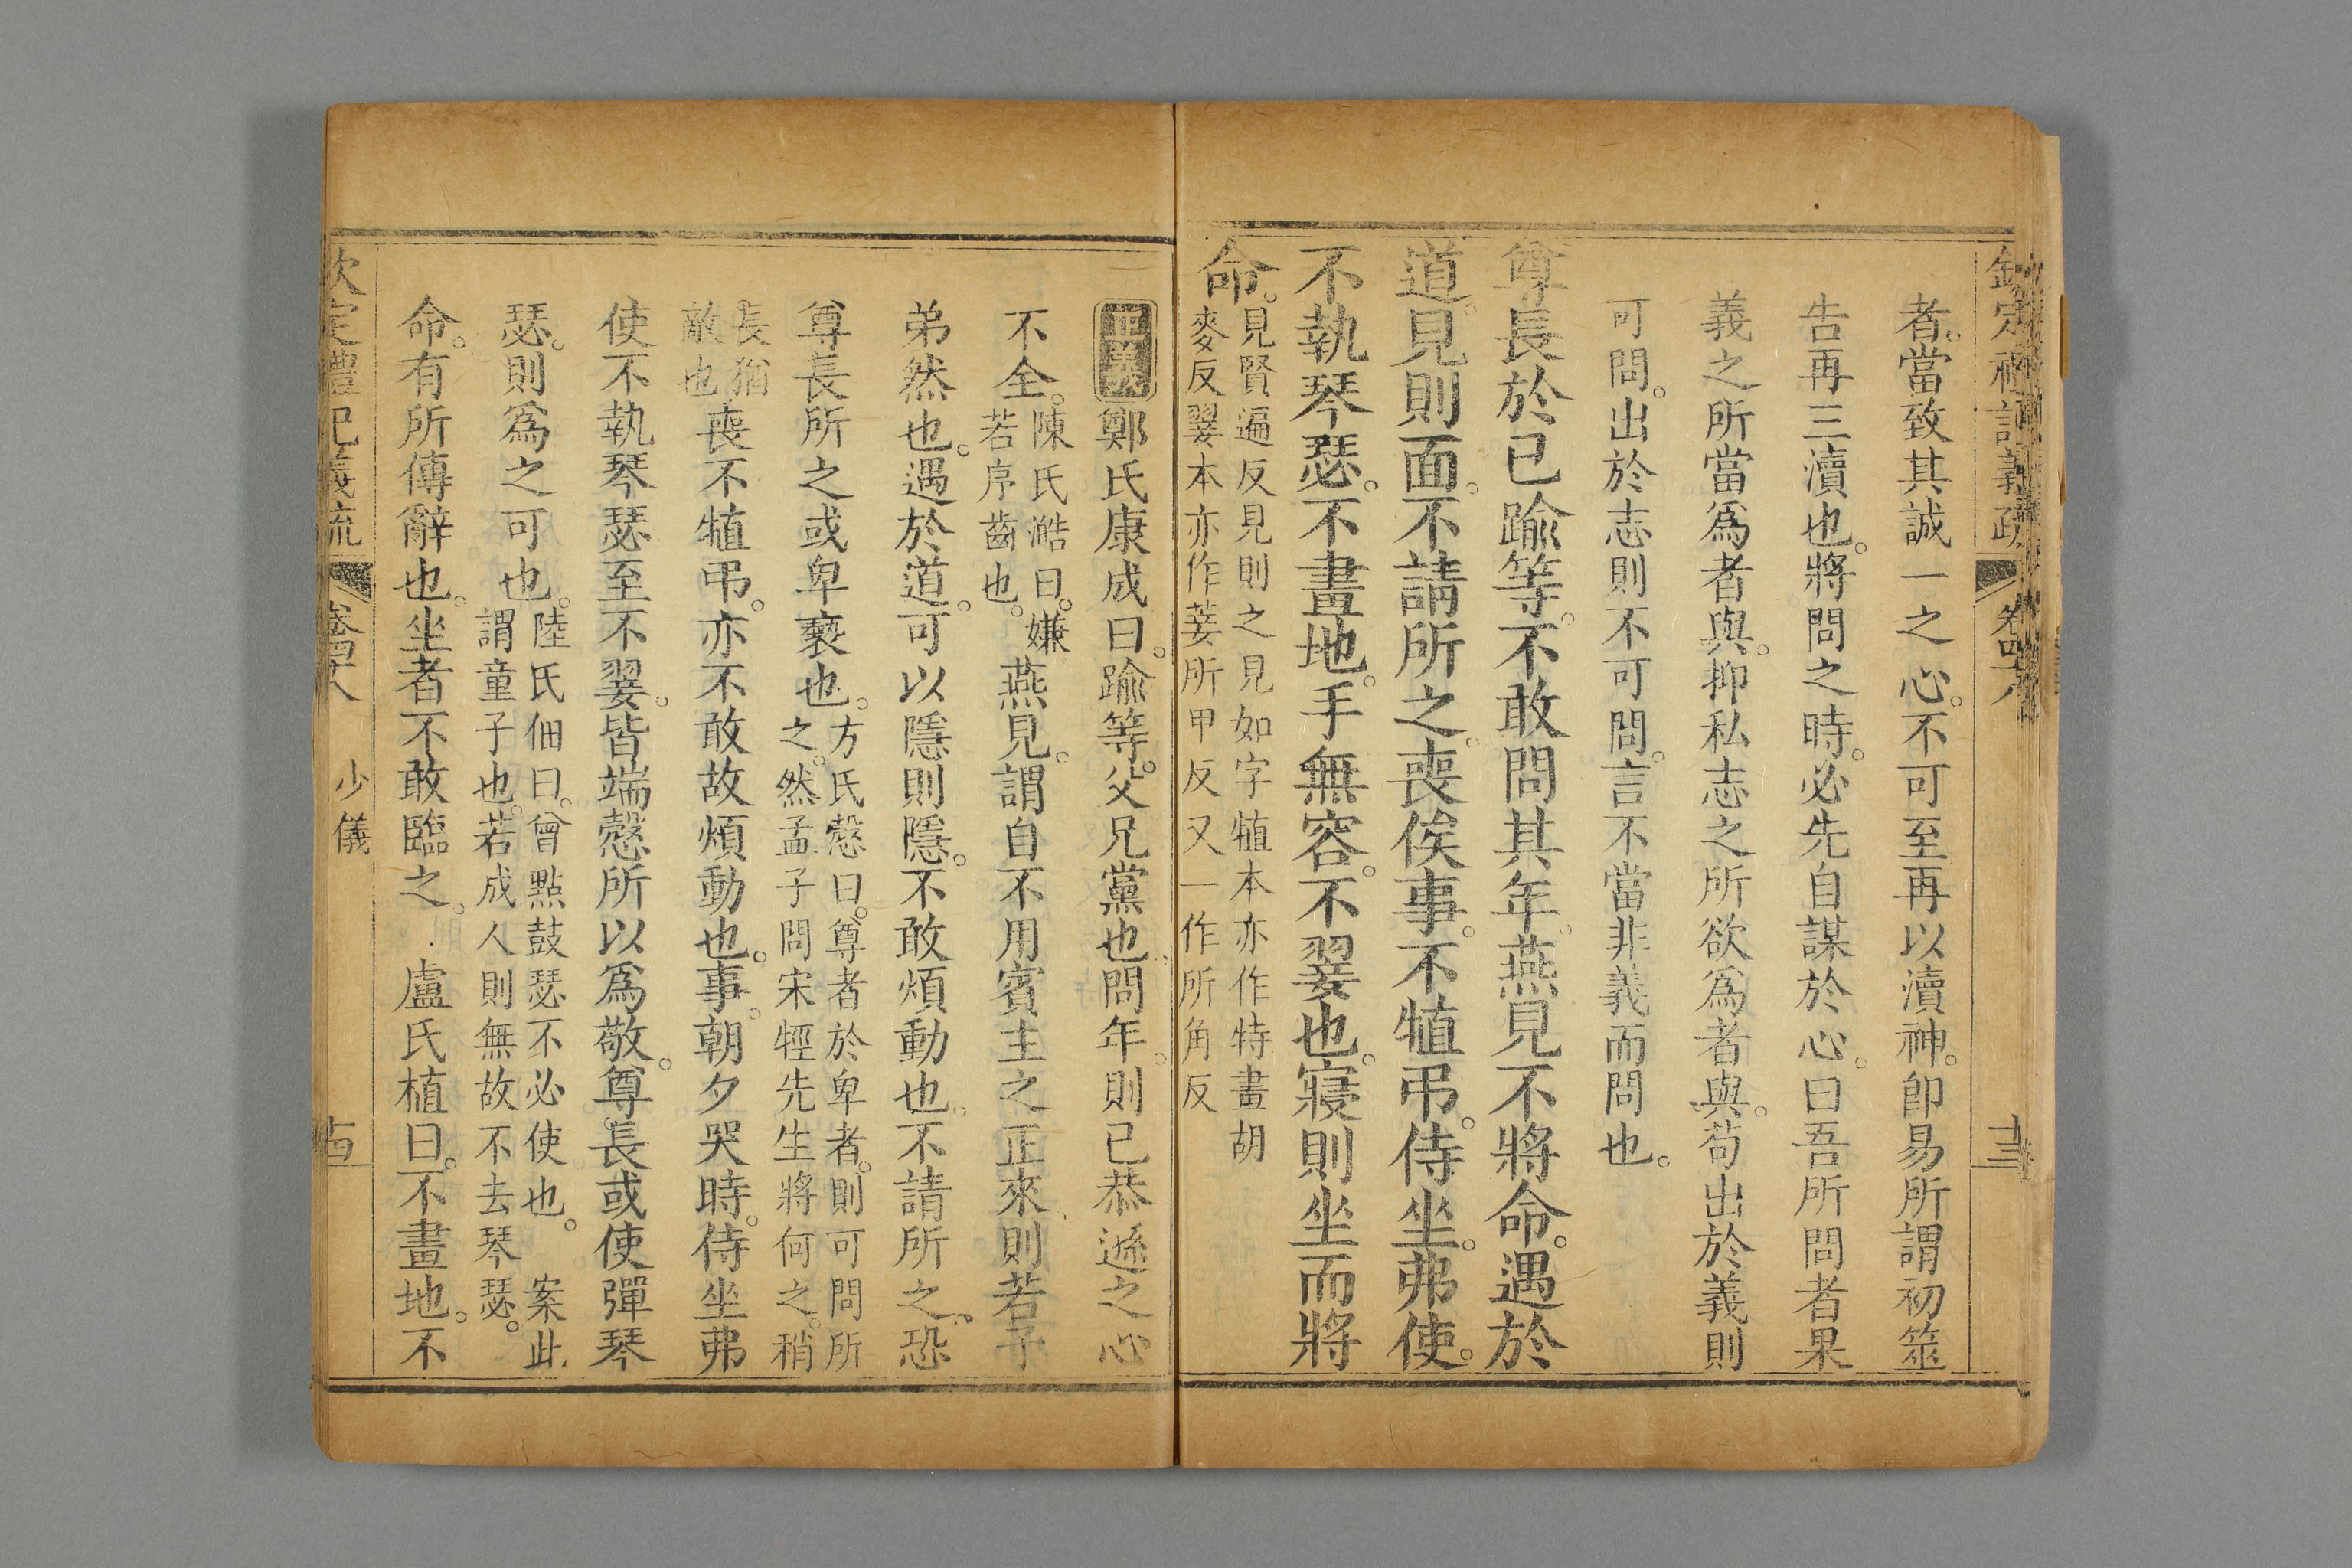 欽定禮記義疏 卷四十八
者。當致其誠一之心。不可至再以瀆神。卽易所謂初筮
告再三瀆也。將問之時。必先自謀於心。曰吾所問者果
義之所當爲者與。抑私志之所欲爲者與。苟出於義則
可問。出於志則不可問。言不當非義而問也。
尊長於已踰等。不敢問其年。燕見不將命。遇於
道。見則面。不請所之。喪俟事。不犆弔。侍坐。弗使。
不執琴瑟。不畫地。手無容。不翣也。寢則坐而將
命。
見賢遍反見則之見如字犆本亦作特畫胡
麥反翣本亦作萐所甲反又一作所角反
正義 鄭氏康成曰。踰等。父兄黨也。問年。則已恭遜之心
不全。
陳氏澔曰。嫌
若序齒也。
燕見。謂自不用賓主之正來。則若子
弟然也。遇於道。可以隱則隱。不敢煩動也。不請所之。恐
尊長所之或卑褻也。
方氏慤曰。尊者於卑者。則可問所
之。然孟子問宋牼先生將何之。稍
長猶
敵也
喪不犆弔。亦不敢故煩動也。事。朝夕哭時。侍坐弗
使不執琴瑟至不翣。皆端慤所以爲敬。尊長或使彈琴
瑟。則爲之可也。
陸氏佃曰。曾點鼓瑟不必使也。 案此
謂童子也。若成人則無故不去琴瑟。
命。有所傳辭也。坐者不敢臨之。 盧氏植曰。不畫地。不
欽定禮記義疏 卷四十八 少儀